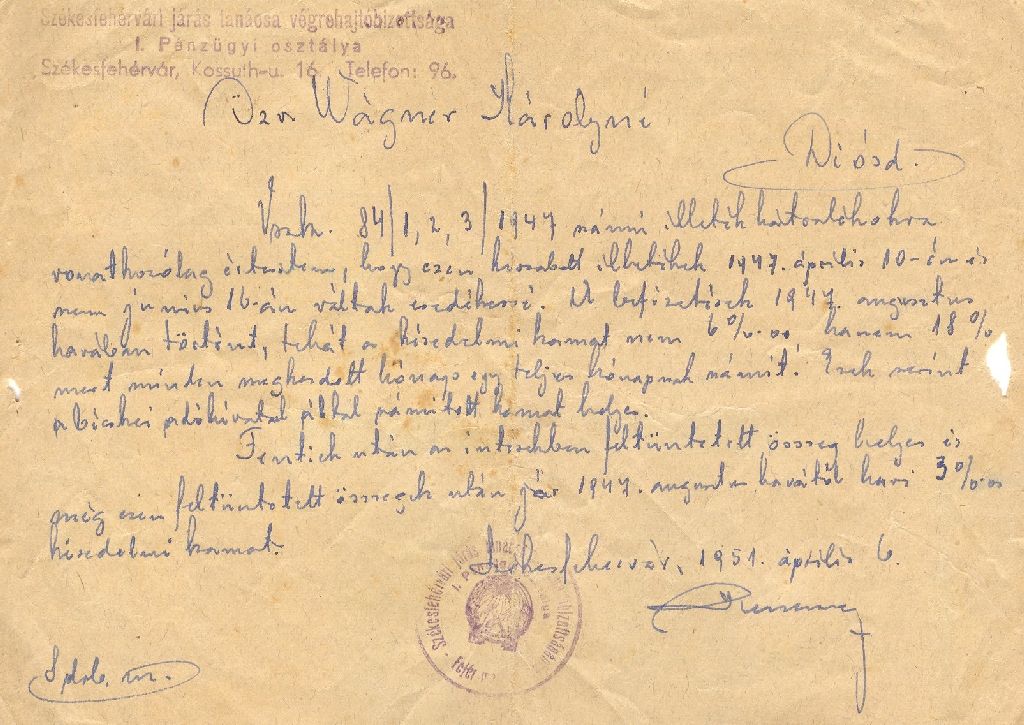 Székesfehérvári járás tanácsa végrehajtóbizottsága
I. Pénzügyi osztálya
Székesfehérvár, Kossuth-u. 16. Telefon: 96.
Özv Wágner Károlyné
Diósd.
84/1, 2, 3/1947 számú illeték
vonatkozólag értesítem, hogy ezen kiszabott illetékek 1947. április 10-én és
nem június 16-án váltak esedékessé. A befizetések 1947. augusztus
havában történt, tehát a késedelmi kamat nem 6%-os hanem 18%
mert minden megkezdett hónap egy teljes hónapnak számít. Ezek szerint
a bicskei adóhivatal által számított kamat helyes.
Fentiek után az intézésben feltüntetett összeg helyes és
még ezen feltüntetett összegek után jár 1947. augusztus havától havi 3%-os
késedelmi kamat.
Székesfehérvár, 1951. április 6.
Székesfehérvári járás
I. Pénzügyi
Fejér
3 drb. m.